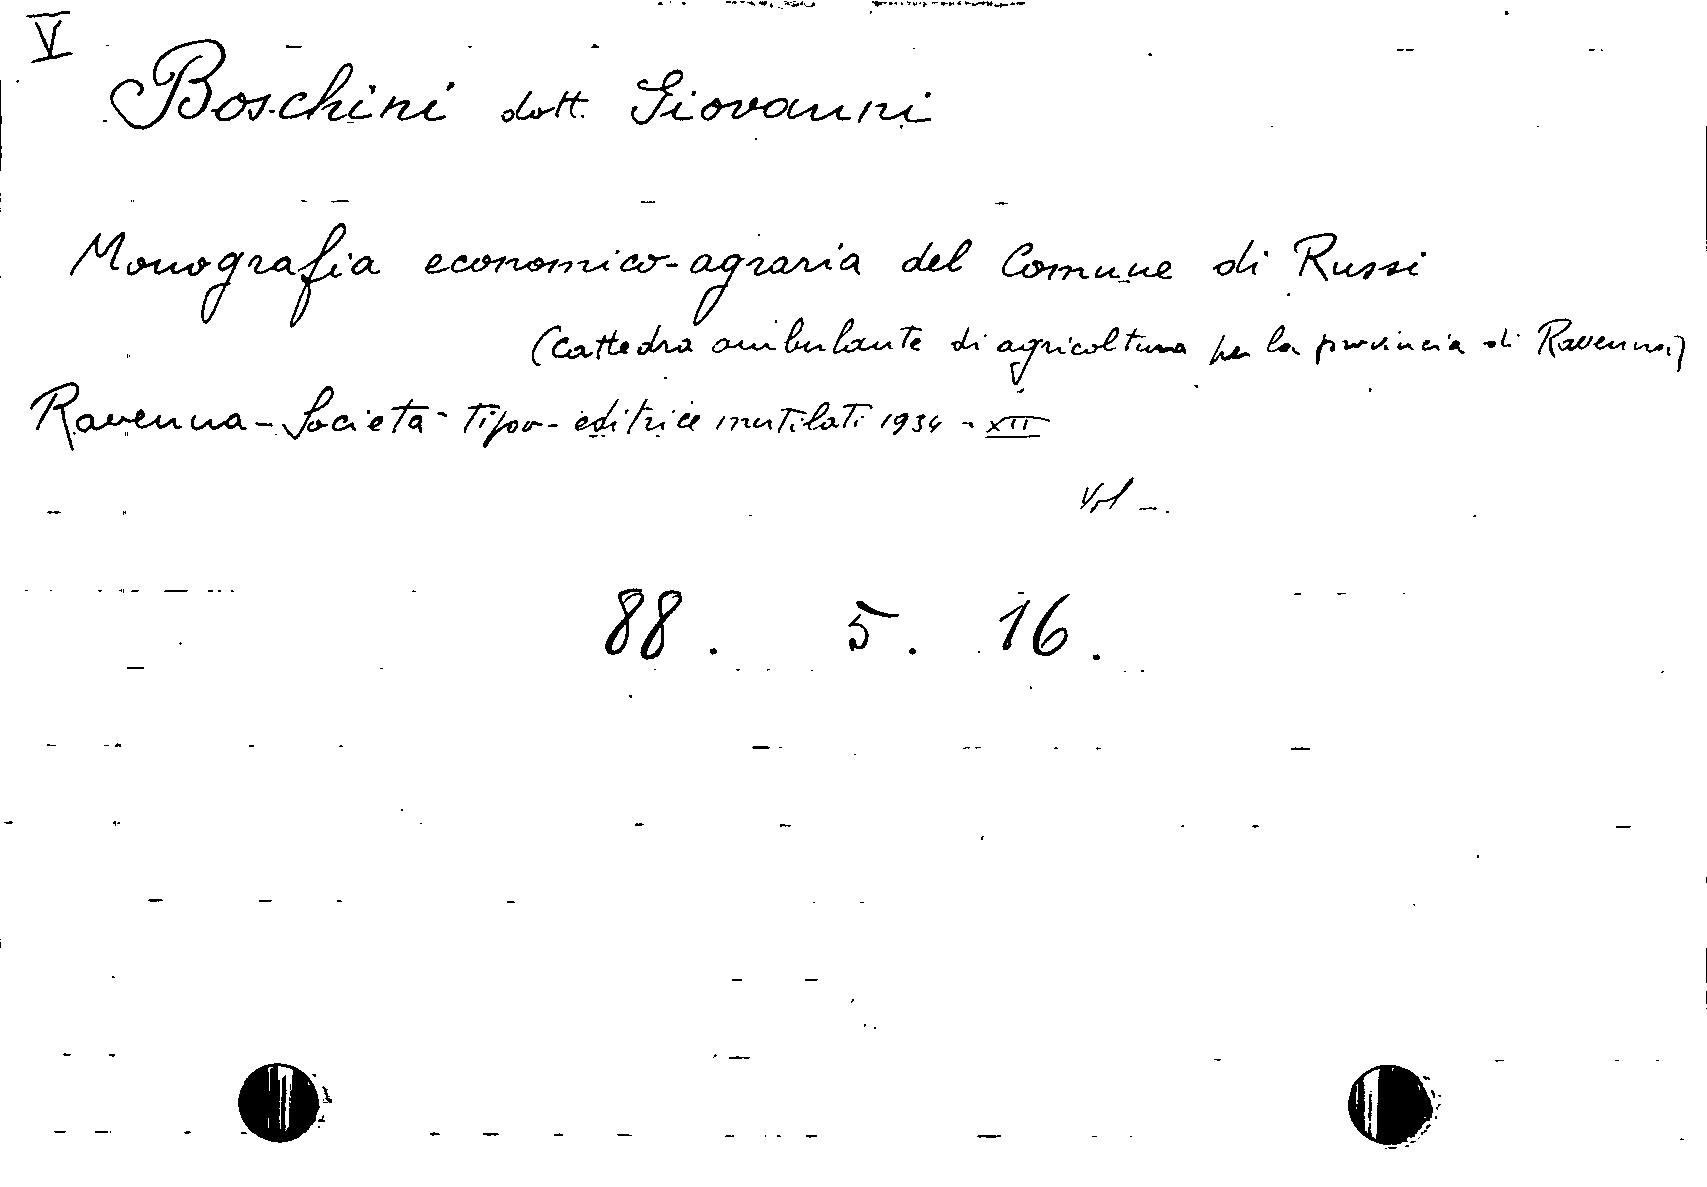 V
Boschini dott. Giovanni
Monografia economico-agraria del Comune di Russi
(Cattedra ambulante di agricoltura per la provincia di Ravenna)
Ravenna - Società - Tipo-editrice mutilati 1934 - XII
Vol -.
88. 5. 16.